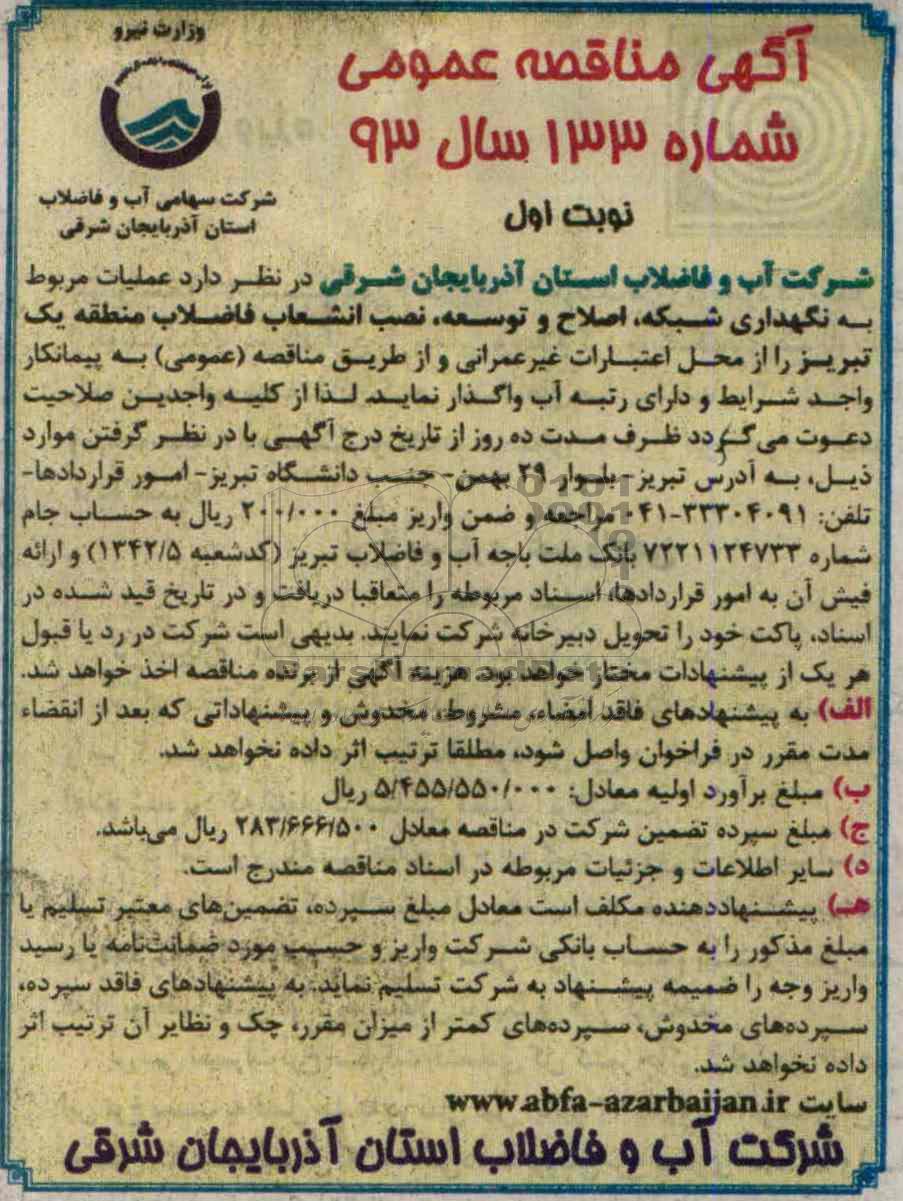 وزارت نیرو
شرکت سهامی آب و فاضلاب
استان آذربایجان شرقی
آگهی مناقصه عمومی
شماره ۱۳۳ سال ۹۳
نوبت اول
شرکت آب و فاضلاب استان آذربایجان شرقی در نظر دارد عملیات مربوط
به نگهداری شبکه، اصلاح و توسعه، نصب انشعاب فاضلاب منطقه یک
تبریز را از محل اعتبارات غیرعمرانی و از طریق مناقصه (عمومی) به پیمانکار
واجد شرایط و دارای رتبه آب واگذار نماید. لذا از کلیه واجدین صلاحیت
دعوت می‌گردد ظرف مدت ده روز از تاریخ درج آگهی با در نظر گرفتن موارد
ذیل، به آدرس تبریز- بلوار ۲۹ بهمن- جنب دانشگاه تبریز- امور قراردادها-
تلفن: ۳۳۳۰۴۰۹۱-۰۴۱ مراجعه و ضمن واریز مبلغ ۲۰۰/۰۰۰ ریال به حساب جام
شماره ۷۲۲۱۱۲۴۷۳۳ بانک ملت باجه آب و فاضلاب تبریز (کدشعبه ۱۳۴۲/۵) و ارائه
فیش آن به امور قراردادها، اسناد مربوطه را متعاقبا دریافت و در تاریخ قید شده در
اسناد، پاکت خود را تحویل دبیرخانه شرکت نمایند. بدیهی است شرکت در رد یا قبول
هر یک از پیشنهادات مختار خواهد بود. هزینه آگهی از برنده مناقصه اخذ خواهد شد.
الف) به پیشنهادهای فاقد امضاء، مشروط، مخدوش و پیشنهاداتی که بعد از انقضاء
مدت مقرر در فراخوان واصل شود، مطلقا ترتیب اثر داده نخواهد شد.
ب) مبلغ برآورد اولیه معادل: ۵/۴۵۵/۵۵۰/۰۰۰ ریال
ج) مبلغ سپرده تضمین شرکت در مناقصه معادل ۲۸۳/۶۶۶/۵۰۰ ریال می‌باشد.
د) سایر اطلاعات و جزئیات مربوطه در اسناد مناقصه مندرج است.
هـ) پیشنهاددهنده مکلف است معادل مبلغ سپرده، تضمین‌های معتبر تسلیم یا
مبلغ مذکور را به حساب بانکی شرکت واریز و حسب مورد ضمانت‌نامه یا رسید
واریز وجه را ضمیمه پیشنهاد به شرکت تسلیم نماید. به پیشنهادهای فاقد سپرده،
سپرده‌های مخدوش، سپرده‌های کمتر از میزان مقرر، چک و نظایر آن ترتیب اثر
داده نخواهد شد.
سایت www.abfa-azarbaijan.ir
شرکت آب و فاضلاب استان آذربایجان شرقی